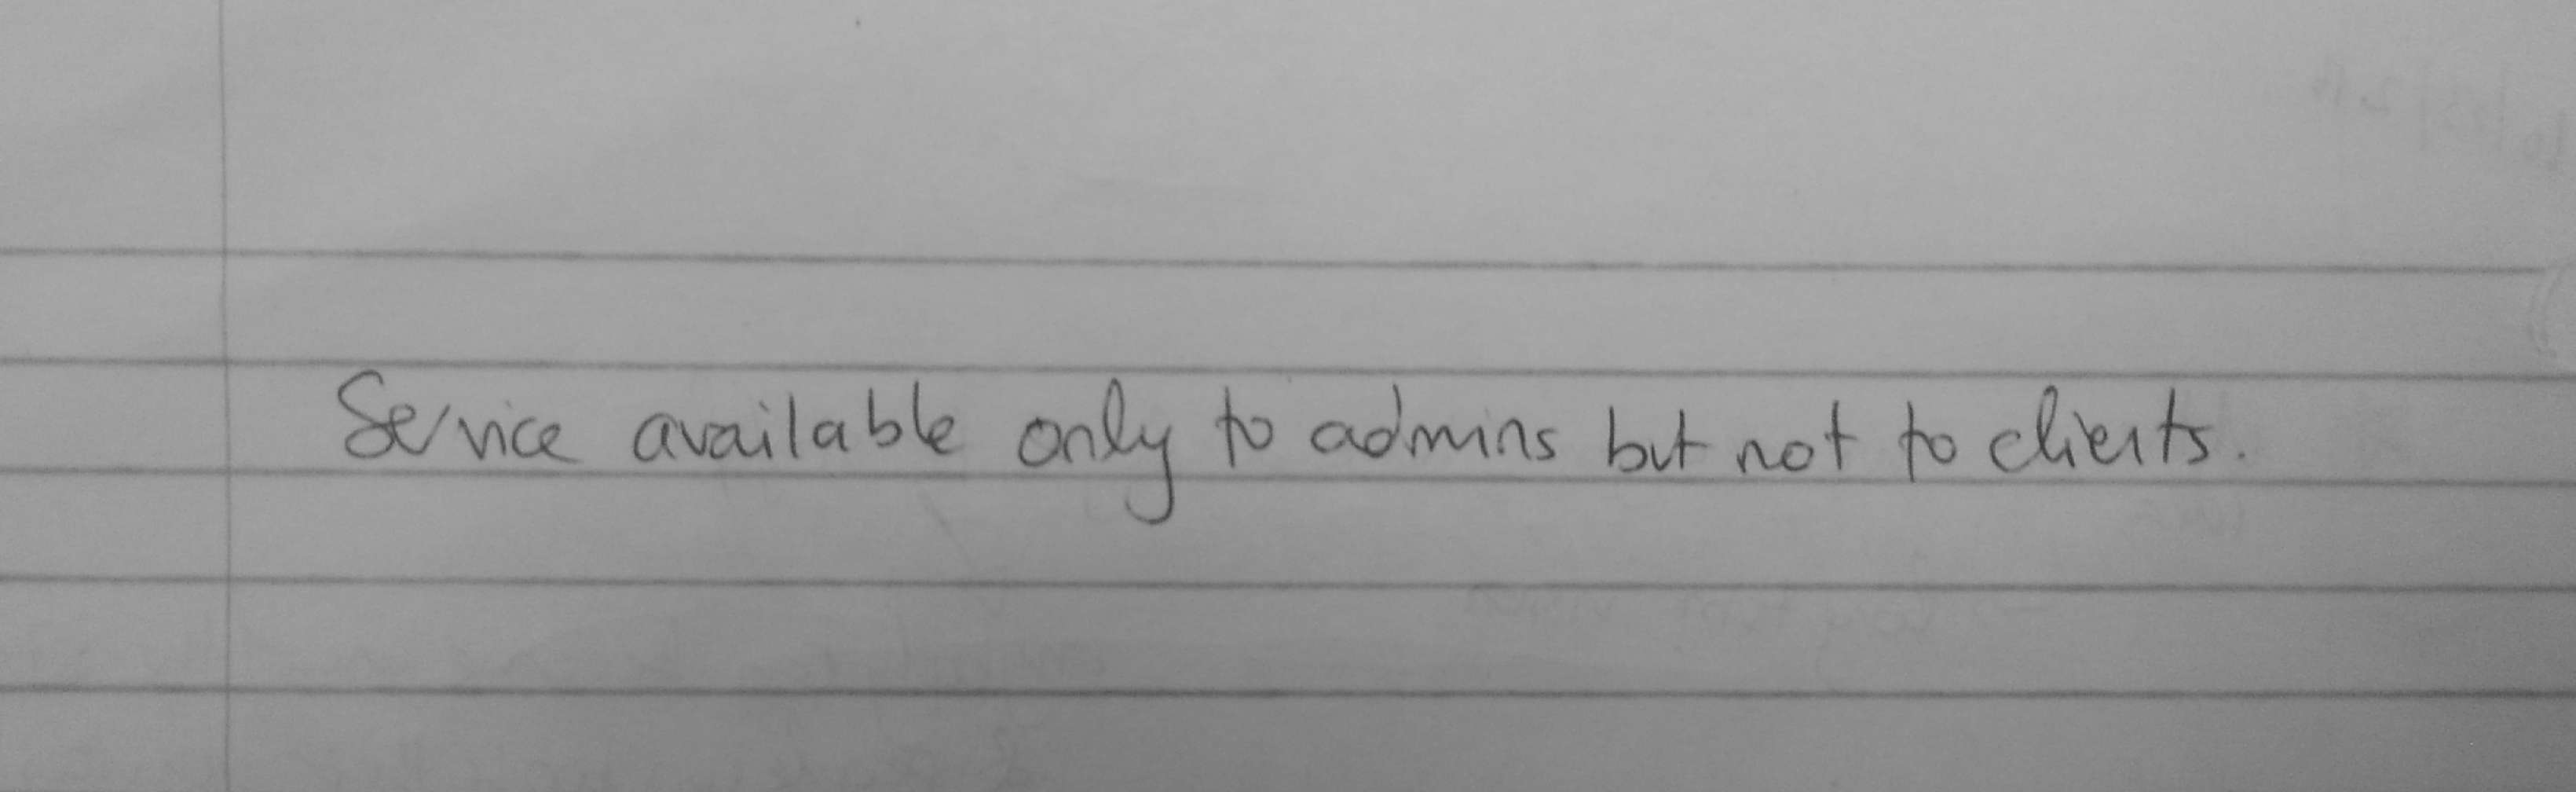 Service available only to admins but not to clients.